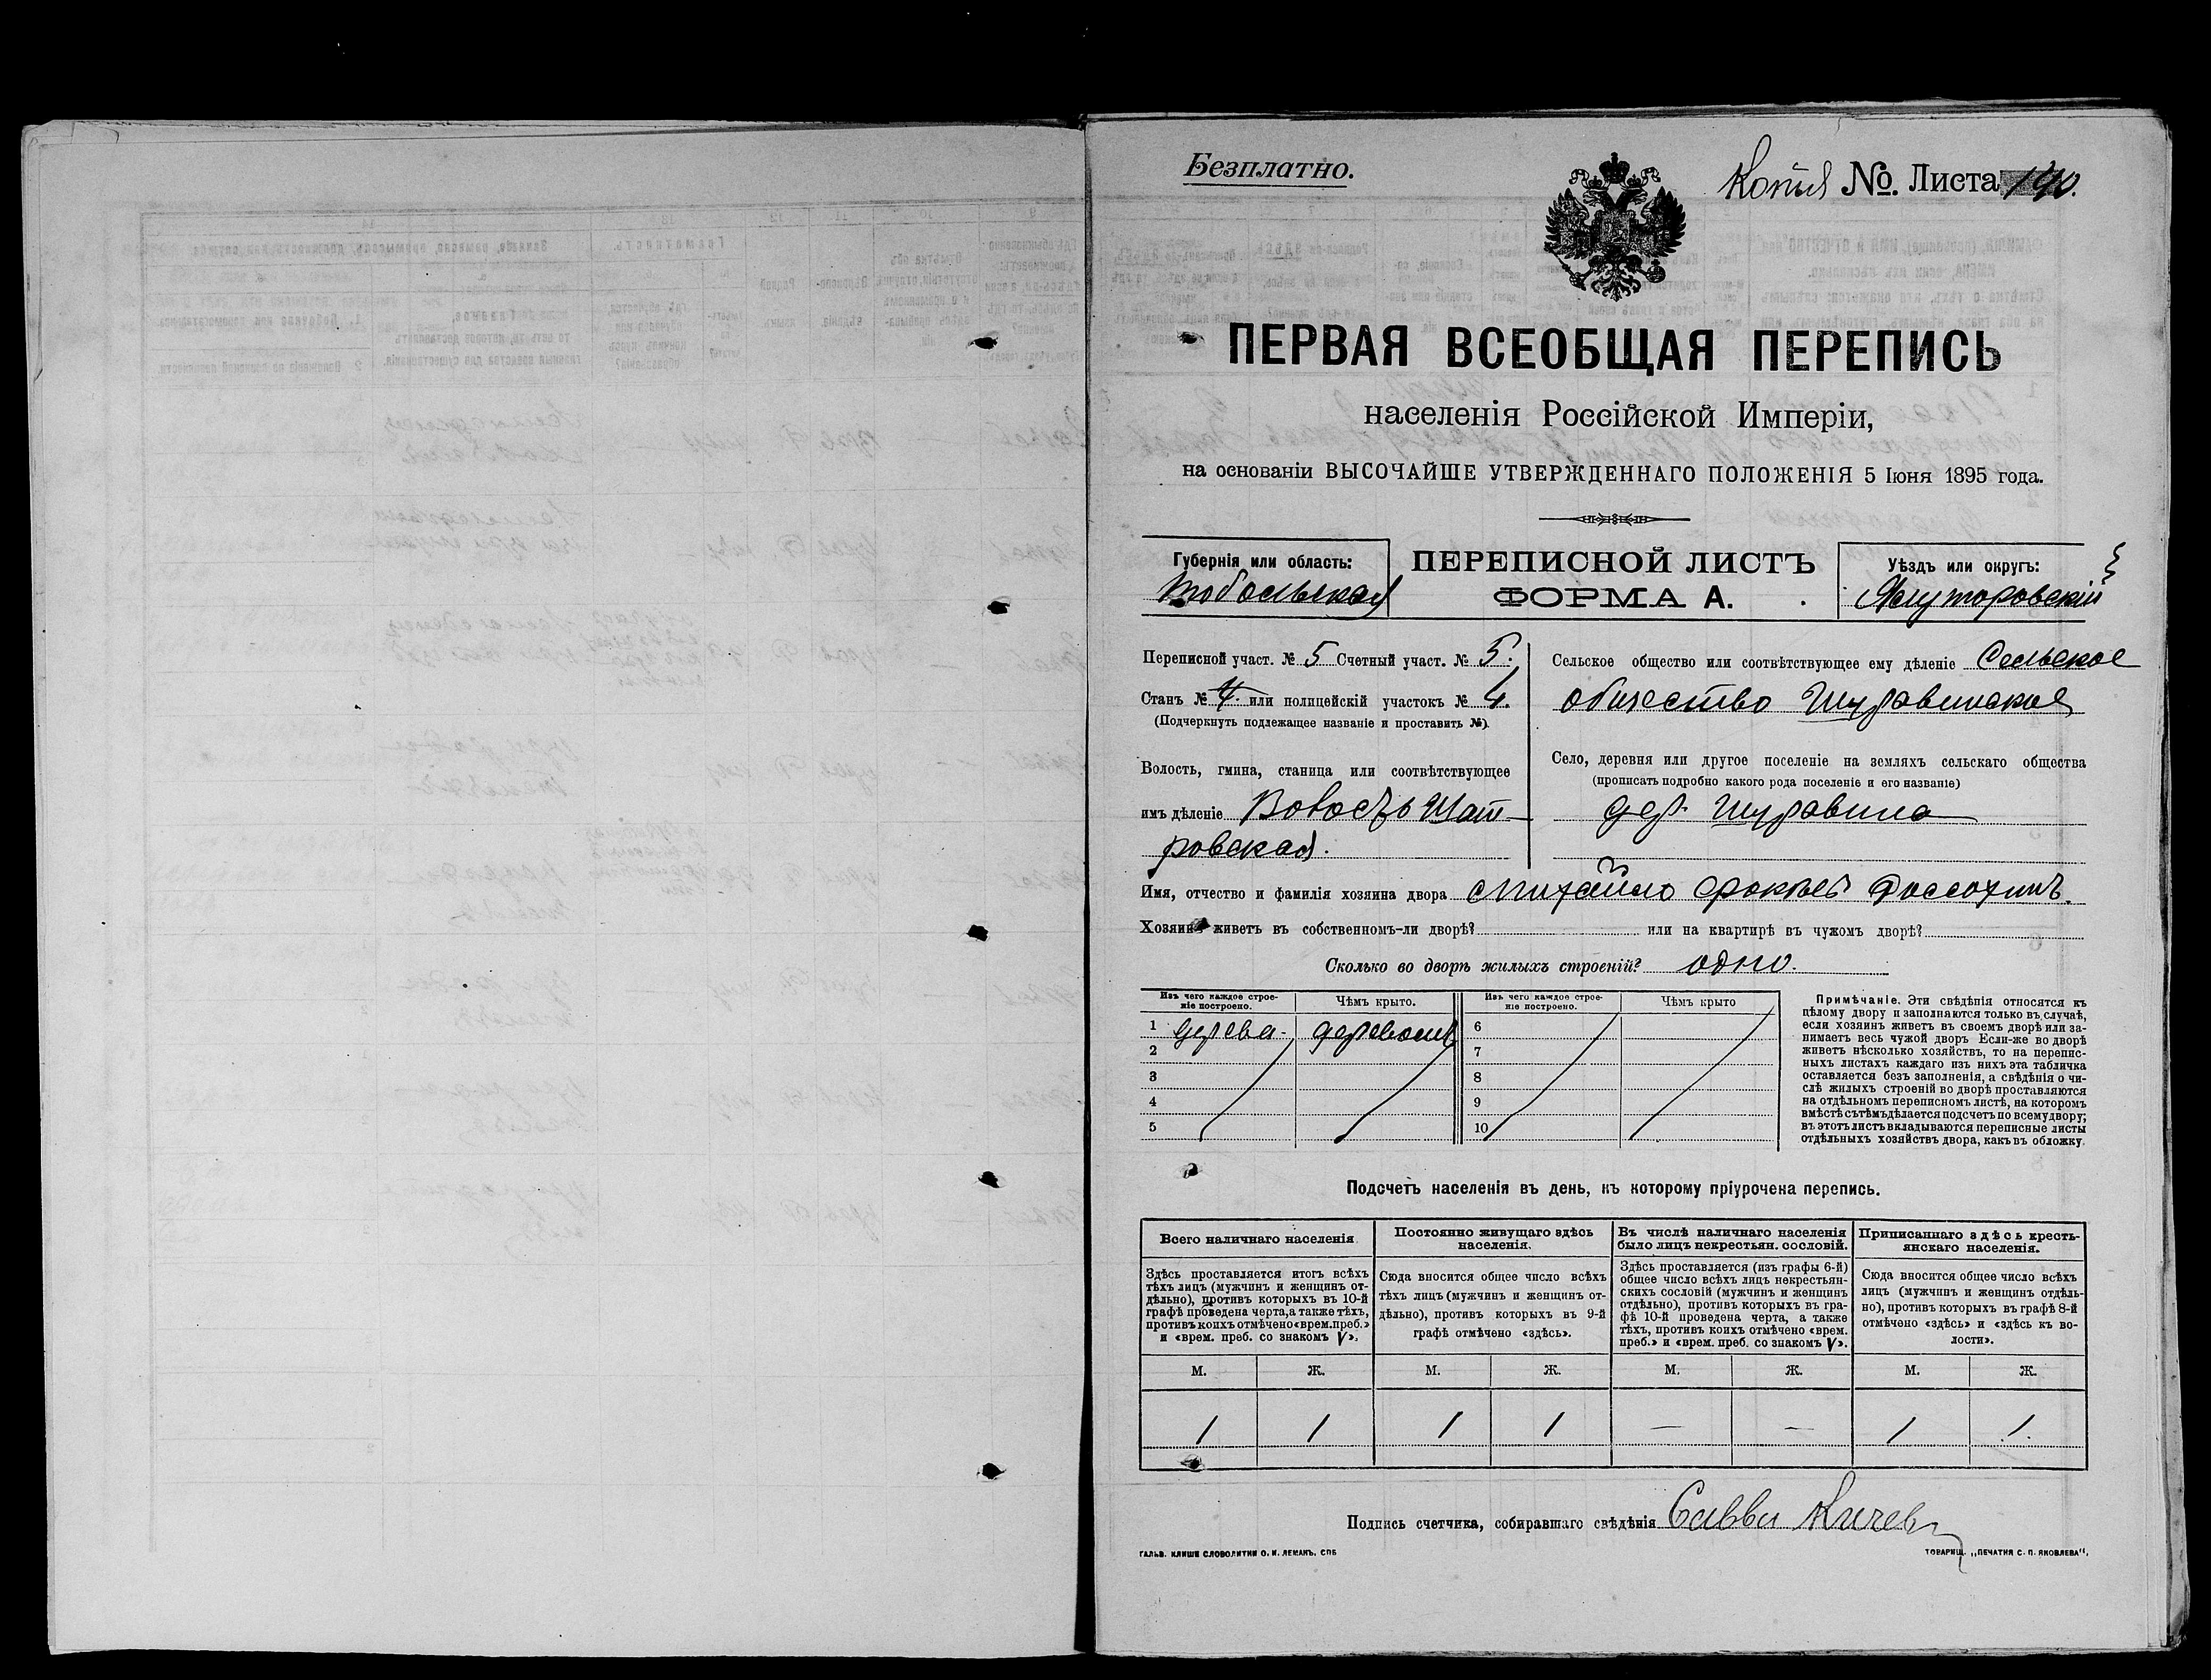 Безплатно.
Копия №. Листа 140.
ПЕРВАЯ ВСЕОБЩАЯ ПЕРЕПИСЬ
населенія Россійской Имперіи,
на основаніи ВЫСОЧАЙШЕ УТВЕРЖДЕННАГО ПОЛОЖЕНІЯ 5 Іюня 1895 года.
Губернія или область:
Тобольская
ПЕРЕПИСНОЙ ЛИСТЪ
ФОРМА А.
Уѣздъ или округъ:
Ялуторовскій
Переписной участ. № 5 Счетный участ. № 5.
Станъ № 4. или полицейскій участокъ № 4.
(Подчеркнуть подлежащее названіе и проставить №).
Волость, гмина, станица или соотвѣтствующее
имъ дѣленіе Волость Шат-
ровская.
Сельское общество или соотвѣтствующее ему дѣленіе Сельское
общество Шуравинское
Село, деревня или другое поселеніе на земляхъ сельскаго общества
(прописать подробно какого рода поселеніе и его названіе)
дер. Шуравина
Имя, отчество и фамилія хозяина двора Михайло
Хозяинъ живетъ въ собственномъ-ли дворѣ? или на квартирѣ въ чужомъ дворѣ?
Сколько во дворѣ жилыхъ строеній? одно.
Изъ чего каждое строе-
ніе построено.
Чѣмъ крыто.
Изъ чего каждое строе-
ніе построено.
Чѣмъ крыто
1 дерева. деревомъ 6
2 7
3 8
4 9
5 10
Примѣчаніе. Эти свѣдѣнія относятся къ
цѣлому двору и заполняются только въ случаѣ,
если хозяинъ живетъ въ своемъ дворѣ или за-
нимаетъ весь чужой дворъ Если-же во дворѣ
живетъ нѣсколько хозяйствъ, то на перепис-
ныхъ листахъ каждаго изъ нихъ эта табличка
оставляется безъ заполненія, а свѣдѣнія о чи-
слѣ жилыхъ строеній во дворѣ проставляются
на отдѣльномъ переписномъ листѣ, на которомъ
вмѣстѣ съ тѣмъ дѣлается подсчетъ по всему двору;
въ этотъ листъ вкладываются переписные листы
отдѣльныхъ хозяйствъ двора, какъ въ обложку.
Подсчетъ населенія въ день, къ которому пріурочена перепись.
Всего наличнаго населенія.
Здѣсь проставляется итогъ всѣхъ
тѣхъ лицъ (мужчинъ и женщинъ от-
дѣльно), противъ которыхъ въ 10-й
графѣ проведена черта, а также тѣхъ,
противъ коихъ отмѣчено «врем. преб.»
и «врем. преб. со знакомъ V».
Постоянно живущаго здѣсь
населенія.
Сюда вносится общее число всѣхъ
тѣхъ лицъ (мужчинъ и женщинъ от-
дѣльно), противъ которыхъ въ 9-й
графѣ отмѣчено «здѣсь».
Въ числѣ наличнаго населенія
было лицъ некрестьян. сословій.
Здѣсь проставляется (изъ графы 6-й)
общее число всѣхъ лицъ некрестьян-
скихъ сословій (мужчинъ и женщинъ
отдѣльно), противъ которыхъ въ гра-
фѣ 10-й проведена черта, а также
тѣхъ, противъ коихъ отмѣчено «врем.
преб.» и «врем. преб. со знакомъ V».
Приписаннаго здѣсь кресть-
янскаго населенія.
Сюда вносится общее число всѣхъ
лицъ (мужчинъ и женщинъ отдѣль-
но), противъ которыхъ въ графѣ 8-й
отмѣчено «здѣсь» и «здѣсь къ во-
лости».
М. Ж. М. Ж. М. Ж. М. Ж.
1 1 1 1 — — 1 1.
Подпись счетчика, собиравшаго свѣдѣнія Савва Кичевъ
ГАЛЬВ. КЛИШЕ СЛОВОЛИТНИ О. И. ЛЕМАНЪ, СПБ
ТОВАРИЩ. „ПЕЧАТНЯ С. П. ЯКОВЛЕВА",